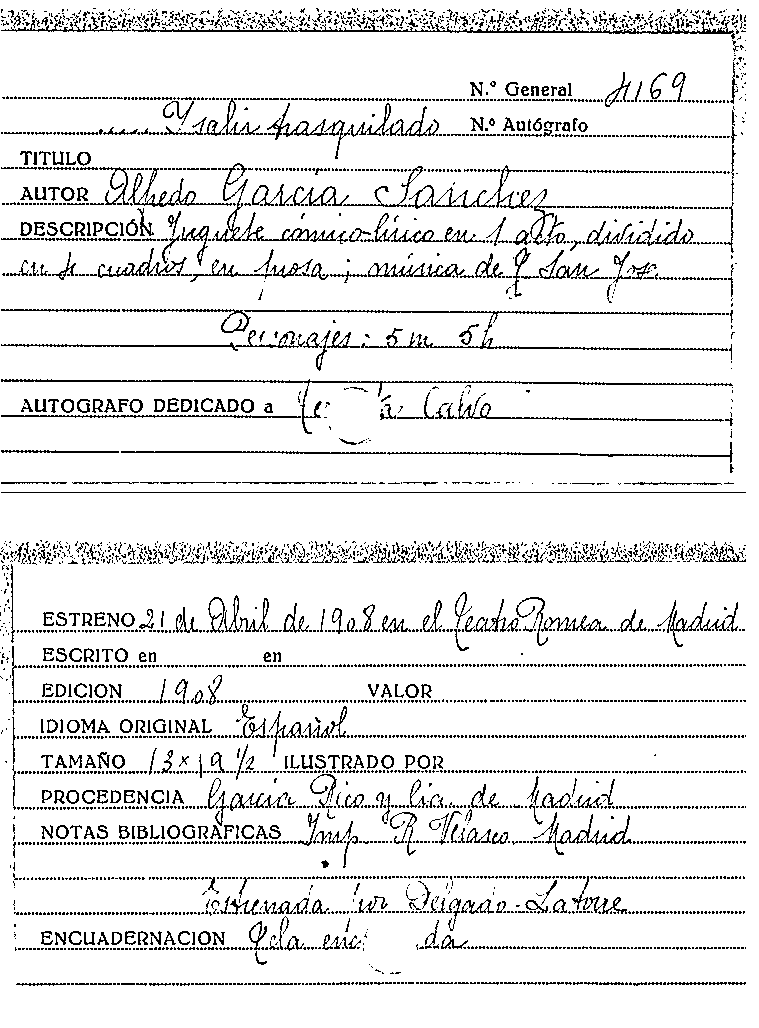 N.º General 4169
..... Y salir trasquilado N.º Autógrafo
TITULO
AUTOR Alfredo García Sanchez
DESCRIPCIÓN Juguete cómico-lírico en 1 acto, dividido
en 4 cuadros, en prosa; música de T San Jose
Personajes: 5 m 5 h
AUTOGRAFO DEDICADO a Calvo
ESTRENO 21 de Abril de 1908 en el Teatro Romea de Madrid
ESCRITO en en
EDICION 1908 VALOR
IDIOMA ORIGINAL Español
TAMAÑO 13 x 19 1/2 ILUSTRADO POR
PROCEDENCIA García Rico y Cia. de Madrid
NOTAS BIBLIOGRÁFICAS Imp. R Velasco. Madrid
Estrenada por Delgado-Latorre
ENCUADERNACION Tela